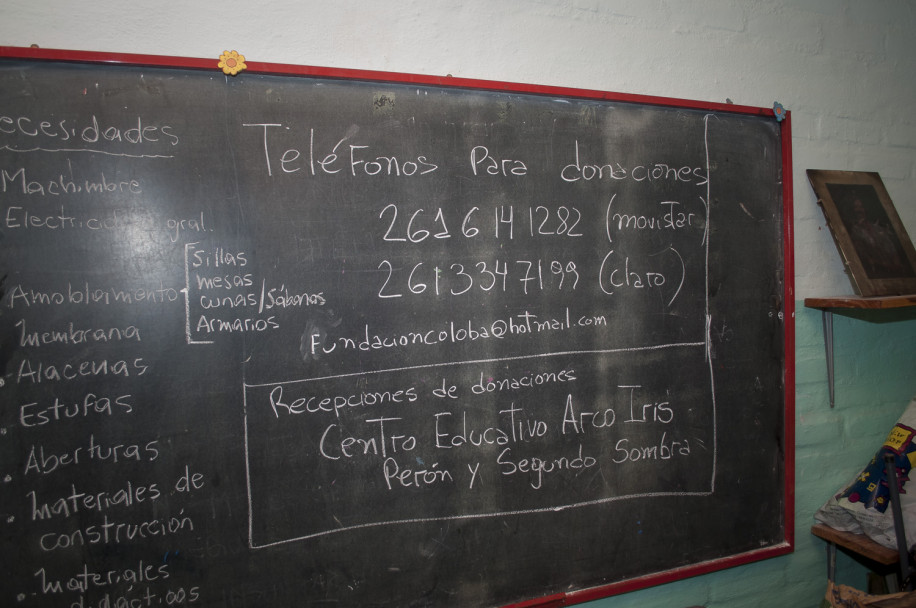 ecesidades
Machimbre
Electricidad gral.
Amoblamiento
Sillas
mesas
cunas/sábanas
Armarios
membrana
. Alacenas
. Estufas
. Aberturas
. materiales de
construcción
. materiales
didácticos
Teléfonos Para donaciones
261 6 141282 (movistar)
2613347199 (claro)
Fundacioncoloba@hotmail.com
Recepciones de donaciones
Centro Educativo Arco Iris
Perón y Segundo Sombra